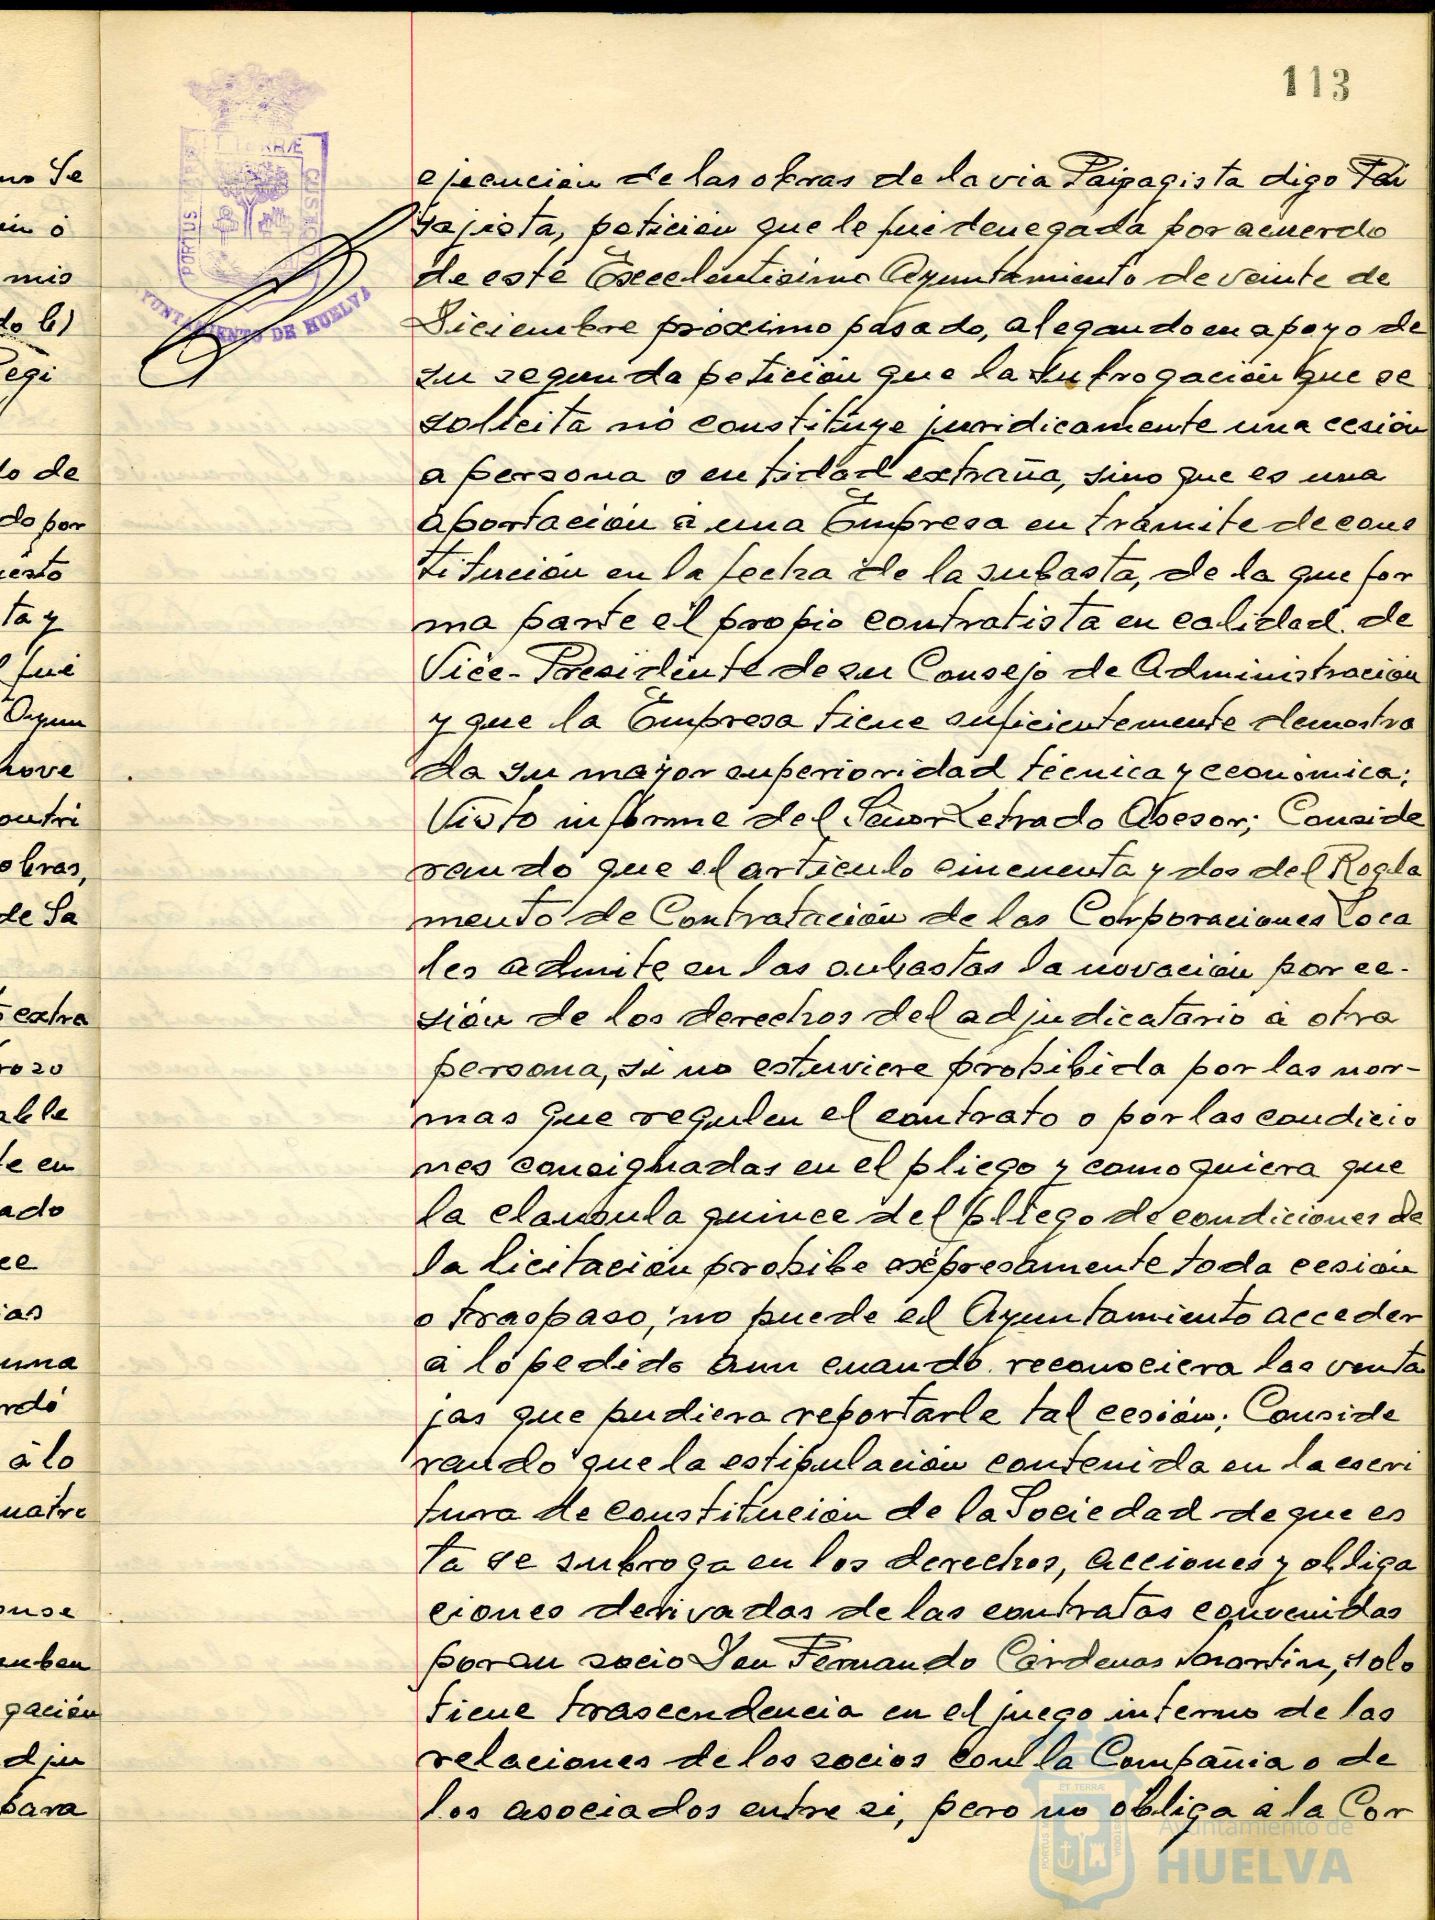 113
ET TERRÆ
PORTUS MARIS
CUSTODIA
AYUNTAMIENTO DE HUELVA
ejecución de las obras de la via Paipagista digo Pai
sajista, petición que le fué denegada por acuerdo
de este Excelentisimo Ayuntamiento de veinte de
Diciembre próximo pasado, alegando en apoyo de
su segunda petición que la subrogación que se
solicita no constituye juridicamente una cesión
a persona o entidad extraña, sino que es una
aportación a una Empresa en trámite de cons
titución en la fecha de la subasta, de la que for
ma parte el propio contratista en calidad de
Vice-Presidente de su Consejo de Administración
y que la Empresa tiene suficientemente demostra
da su mayor superioridad técnica y económica;
Visto informe del Señor Letrado Asesor; Conside
rando que el articulo cincuenta y dos del Regla
mento de Contratación de las Corporaciones Loca
les admite en las subastas la novación por ce-
sión de los derechos del adjudicatario a otra
persona, si no estuviere prohibida por las nor-
mas que regulen el contrato o por las condicio
nes consignadas en el pliego y como quiera que
la clausula quince del pliego de condiciones de
la licitación prohibe expresamente toda cesión
o traspaso, no puede el Ayuntamiento acceder
a lo pedido aun cuando reconociera las venta
jas que pudiera reportarle tal cesión; Conside
rando que la estipulación contenida en la escri
tura de constitución de la Sociedad de que es
ta se subroga en los derechos, acciones y obliga
ciones derivadas de las contratas convenidas
por su socio Don Fernando Cárdenas Martin, solo
tiene trascendencia en el juego interno de las
relaciones de los socios con la Compañia o de
los asociados entre si, pero no obliga a la Cor
Ayuntamiento de
HUELVA